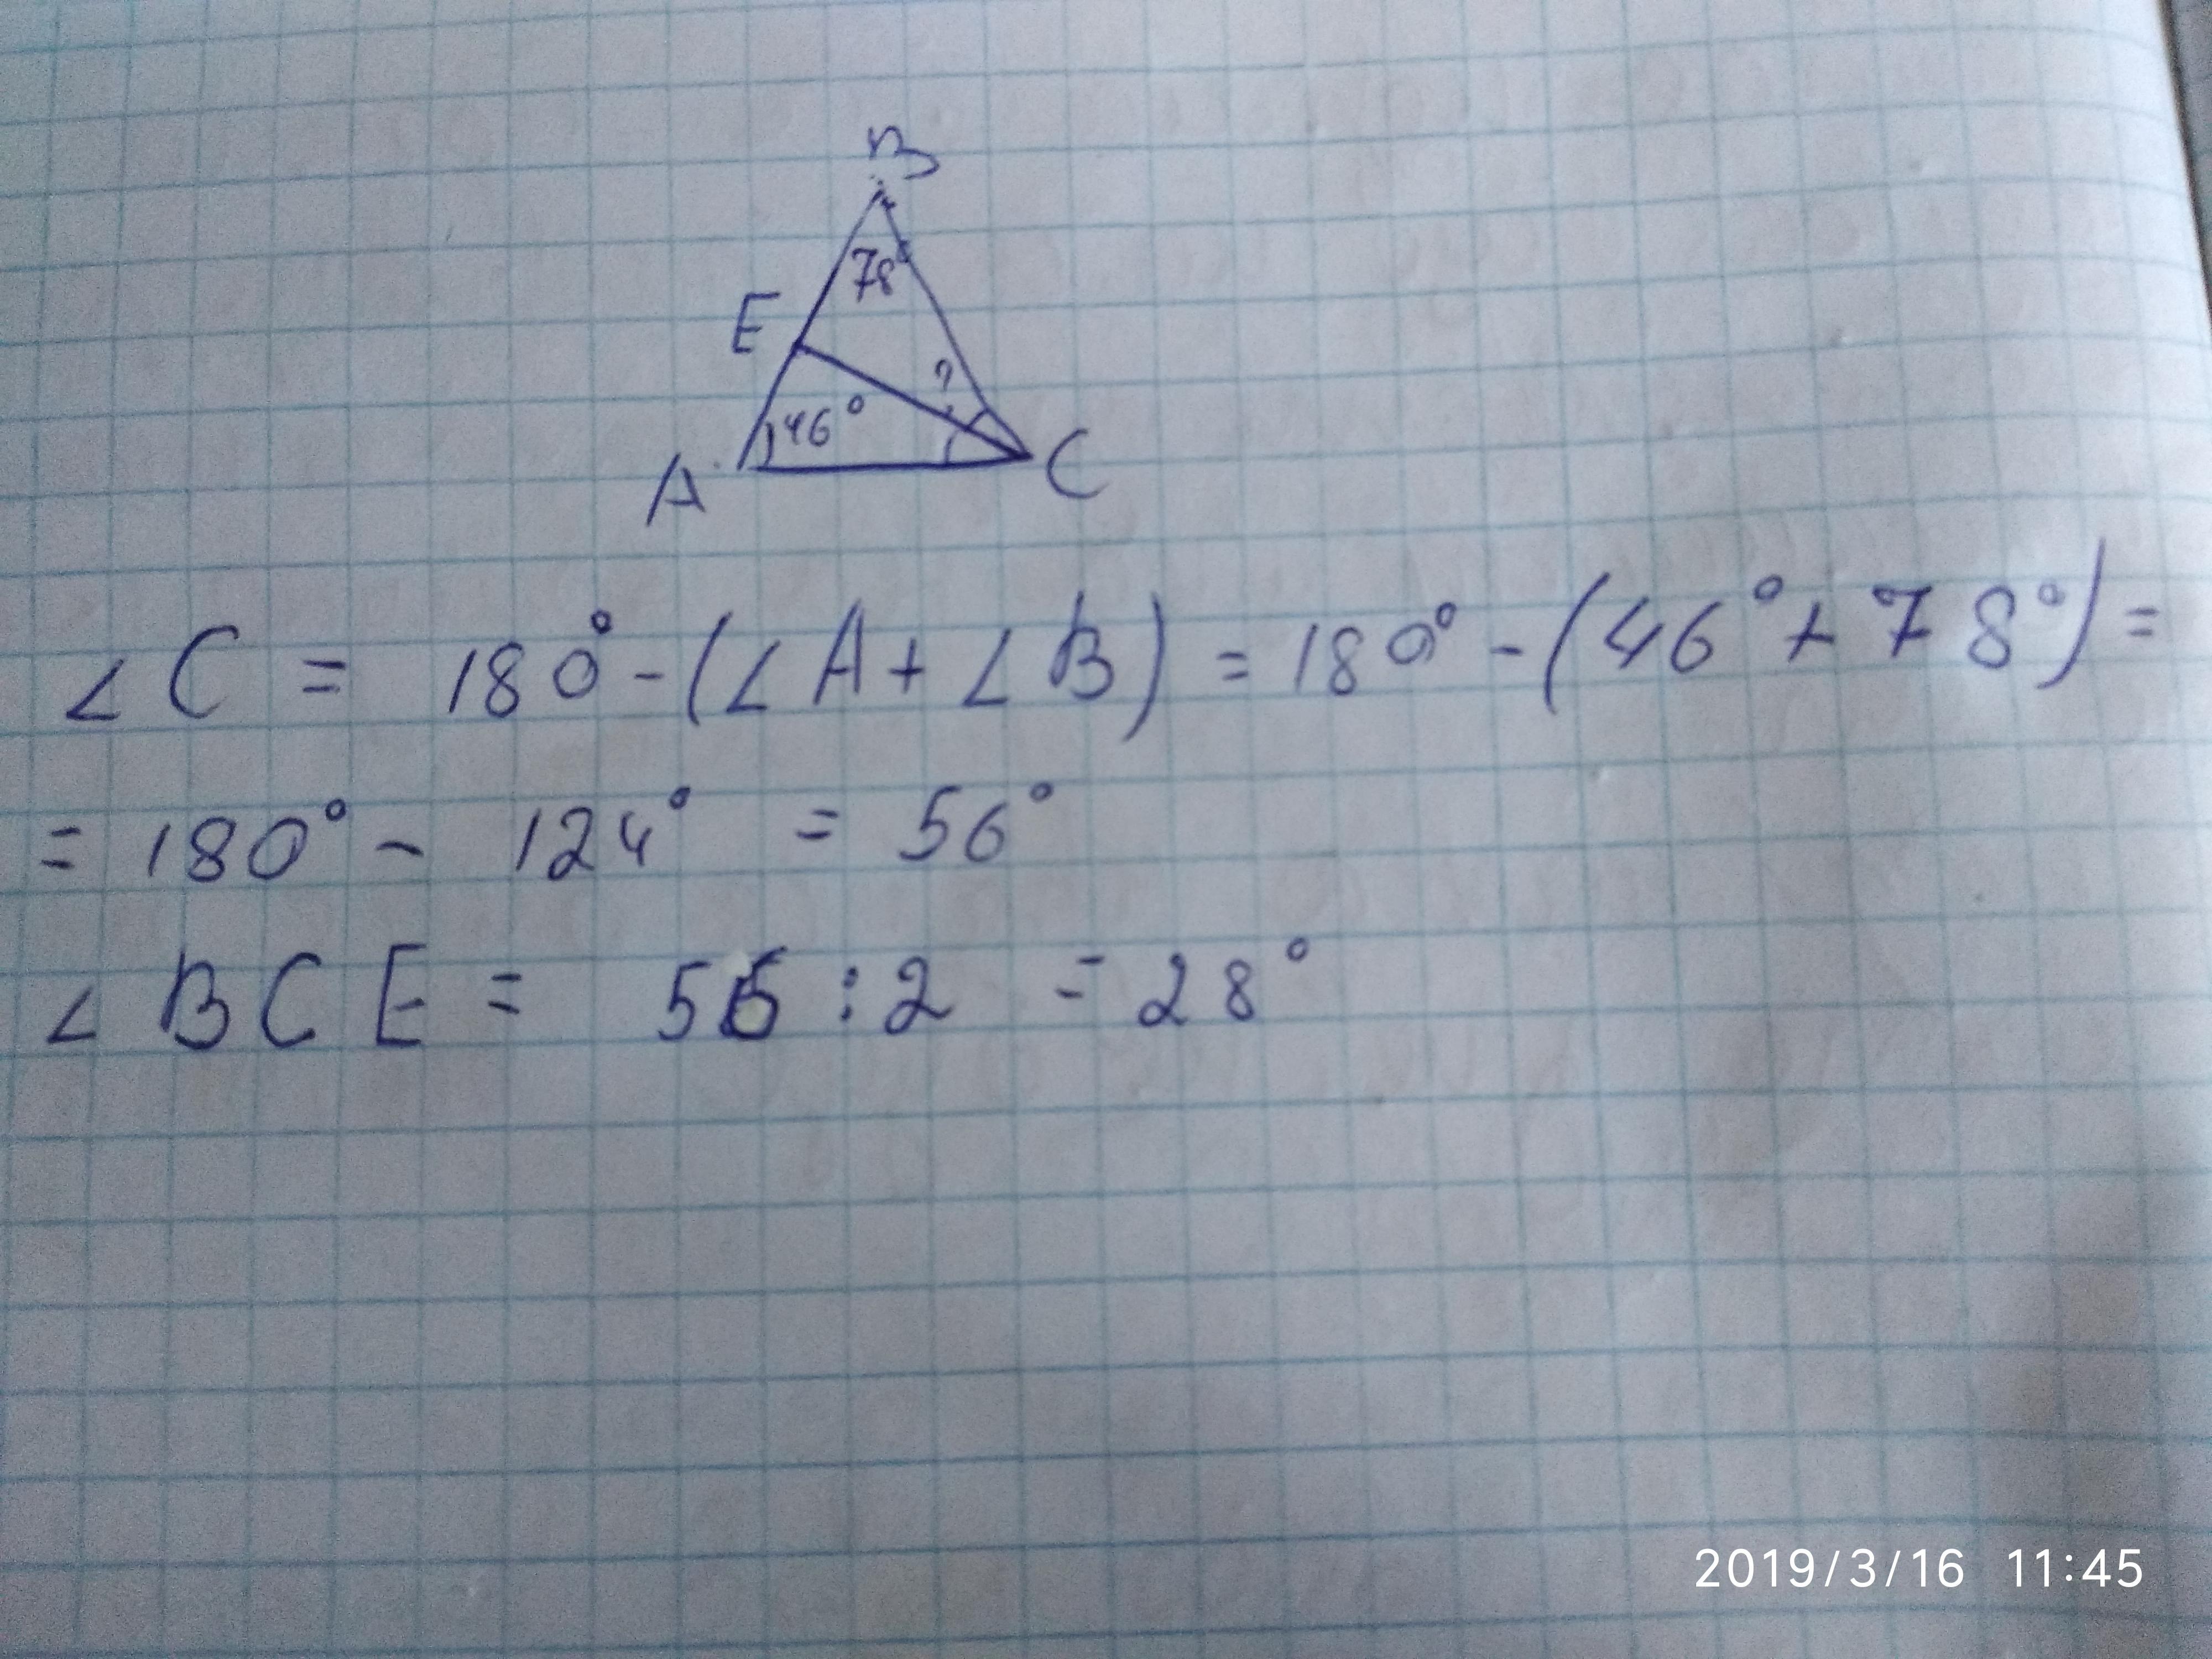 B
78°
E
?
46°
A
C
∠C = 180° - (∠A + ∠B) = 180° - (46° + 78°) =
= 180° - 124° = 56°
∠BCE = 56 : 2 = 28°
2019/3/16 11:45